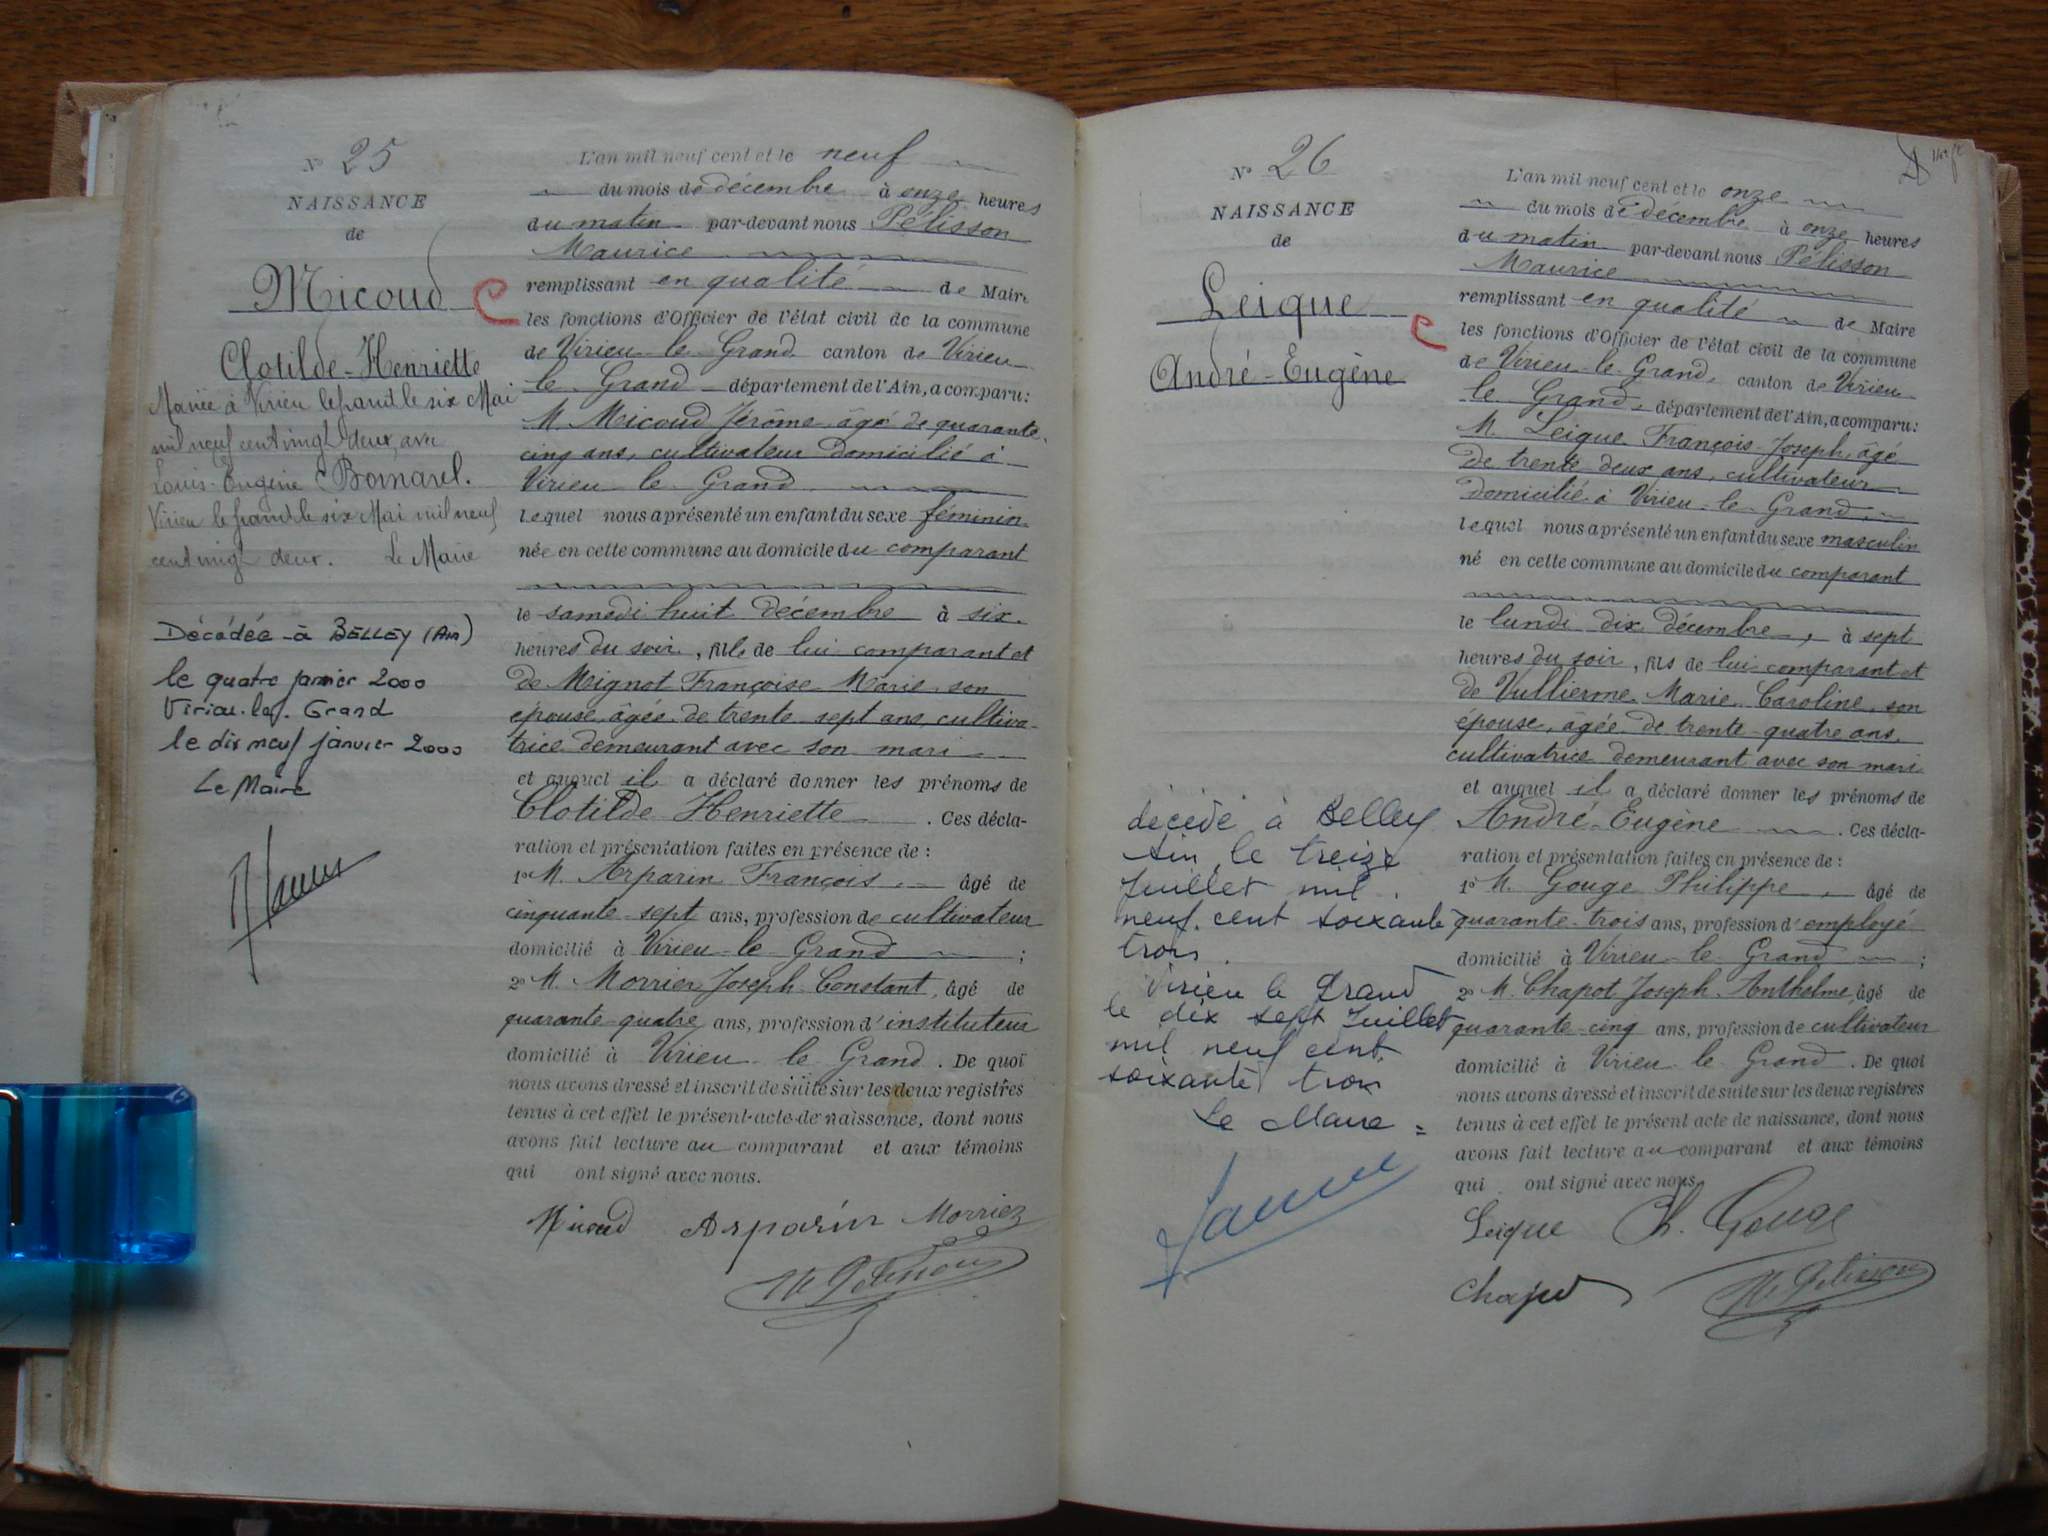 N° 25
NAISSANCE
de
Micoud
Clotilde-Henriette
Mariée à Virieu le grand le six Mai
mil neuf cent vingt deux, avec
Louis-Eugène Bornarel.
Virieu le grand le six Mai mil neuf
cent vingt deux. Le Maire
Décédée à BELLEY (Ain)
le quatre janvier 2000
Virieu-le-Grand
le dix neuf janvier 2000
Le Maire
L'an mil neuf cent et le neuf
du mois de décembre à onze heures
du matin par-devant nous Pélisson
Maurice
remplissant en qualité de Maire
les fonctions d'Officier de l'état civil de la commune
de Virieu-le-Grand canton de Virieu-
le-Grand département de l'Ain, a comparu:
M. Micoud Jérôme âgé de quarante-
cinq ans, cultivateur domicilié à
Virieu-le-Grand
lequel nous a présenté un enfant du sexe féminin
née en cette commune au domicile du comparant
le samedi huit décembre à six
heures du soir, fille de lui comparant et
de Mignot Françoise Marie son
épouse, âgée de trente-sept ans, cultiva-
trice demeurant avec son mari
et auquel il a déclaré donner les prénoms de
Clotilde Henriette. Ces décla-
ration et présentation faites en présence de :
1° M. Arparin François âgé de
cinquante-sept ans, profession de cultivateur
domicilié à Virieu-le-Grand ;
2° M. Morrier Joseph Constant, âgé de
quarante-quatre ans, profession d'instituteur
domicilié à Virieu-le-Grand. De quoi
nous avons dressé et inscrit de suite sur les deux registres
tenus à cet effet le présent acte de naissance, dont nous
avons fait lecture au comparant et aux témoins
qui ont signé avec nous.
Micoud Arparin Morrier
M. Pélisson
N° 26
NAISSANCE
de
Leique
André-Eugène
décédé à Belley
Ain, le treize
Juillet mil
neuf cent soixante
trois.
Virieu le Grand
le dix sept Juillet
mil neuf cent
soixante trois
Le Maire
L'an mil neuf cent et le onze
du mois de décembre à onze heures
du matin par-devant nous Pélisson
Maurice
remplissant en qualité de Maire
les fonctions d'Officier de l'état civil de la commune
de Virieu-le-Grand, canton de Virieu-
le-Grand, département de l'Ain, a comparu:
M. Leique François-Joseph, âgé
de trente-deux ans, cultivateur
domicilié à Virieu-le-Grand
lequel nous a présenté un enfant du sexe masculin
né en cette commune au domicile du comparant
le lundi dix décembre, à sept
heures du soir, fils de lui comparant et
de Vullierme Marie Caroline, son
épouse, âgée de trente-quatre ans,
cultivatrice demeurant avec son mari
et auquel il a déclaré donner les prénoms de
André-Eugène. Ces décla-
ration et présentation faites en présence de :
1° M. Gouge Philippe, âgé de
quarante-trois ans, profession d'employé
domicilié à Virieu-le-Grand ;
2° M. Chapot Joseph-Anthelme, âgé de
quarante-cinq ans, profession de cultivateur
domicilié à Virieu-le-Grand. De quoi
nous avons dressé et inscrit de suite sur les deux registres
tenus à cet effet le présent acte de naissance, dont nous
avons fait lecture au comparant et aux témoins
qui ont signé avec nous.
Leique Ph. Gouge
Chapot M. Pélisson